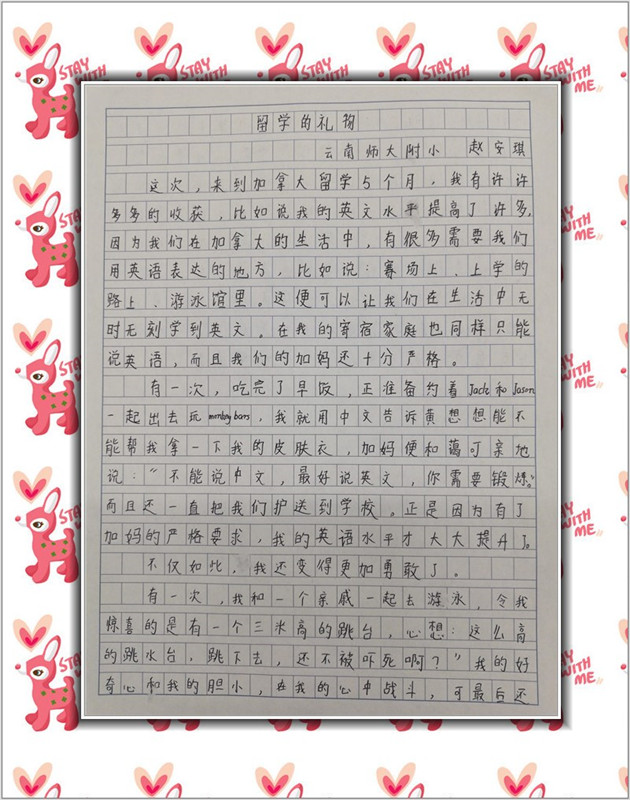 留学的礼物
云南师大附小 赵安琪
这次，来到加拿大留学5个月，我有许许
多多的收获，比如说我的英文水平提高了许多，
因为我们在加拿大的生活中，有很多需要我们
用英语表达的地方，比如说：赛场上、上学的
路上、游泳馆里。这便可以让我们在生活中无
时无刻学到英文。在我的寄宿家庭也同样只能
说英语，而且我们的加妈还十分严格。
有一次，吃完了早饭，正准备约着Jack和Jason
一起出去玩monkey bars，我就用中文告诉黄想想能不
能帮我拿一下我的皮肤衣，加妈便和蔼可亲地
说：“不能说中文，最好说英文，你需要锻炼。”
而且还一直把我们护送到学校。正是因为有了
加妈的严格要求，我的英语水平才大大提升了。
不仅如此，我还变得更加勇敢了。
有一次，我和一个亲戚一起去游泳，令我
惊喜的是有一个三米高的跳台，心想：这么高
的跳水台，跳下去，还不被吓死啊？”我的好
奇心和我的胆小，在我的心中战斗，可最后还
STAY WITH ME
STAY WITH ME
STAY WITH ME
STAY WITH ME
STAY WITH ME
STAY WITH ME
STAY WITH ME
STAY WITH ME